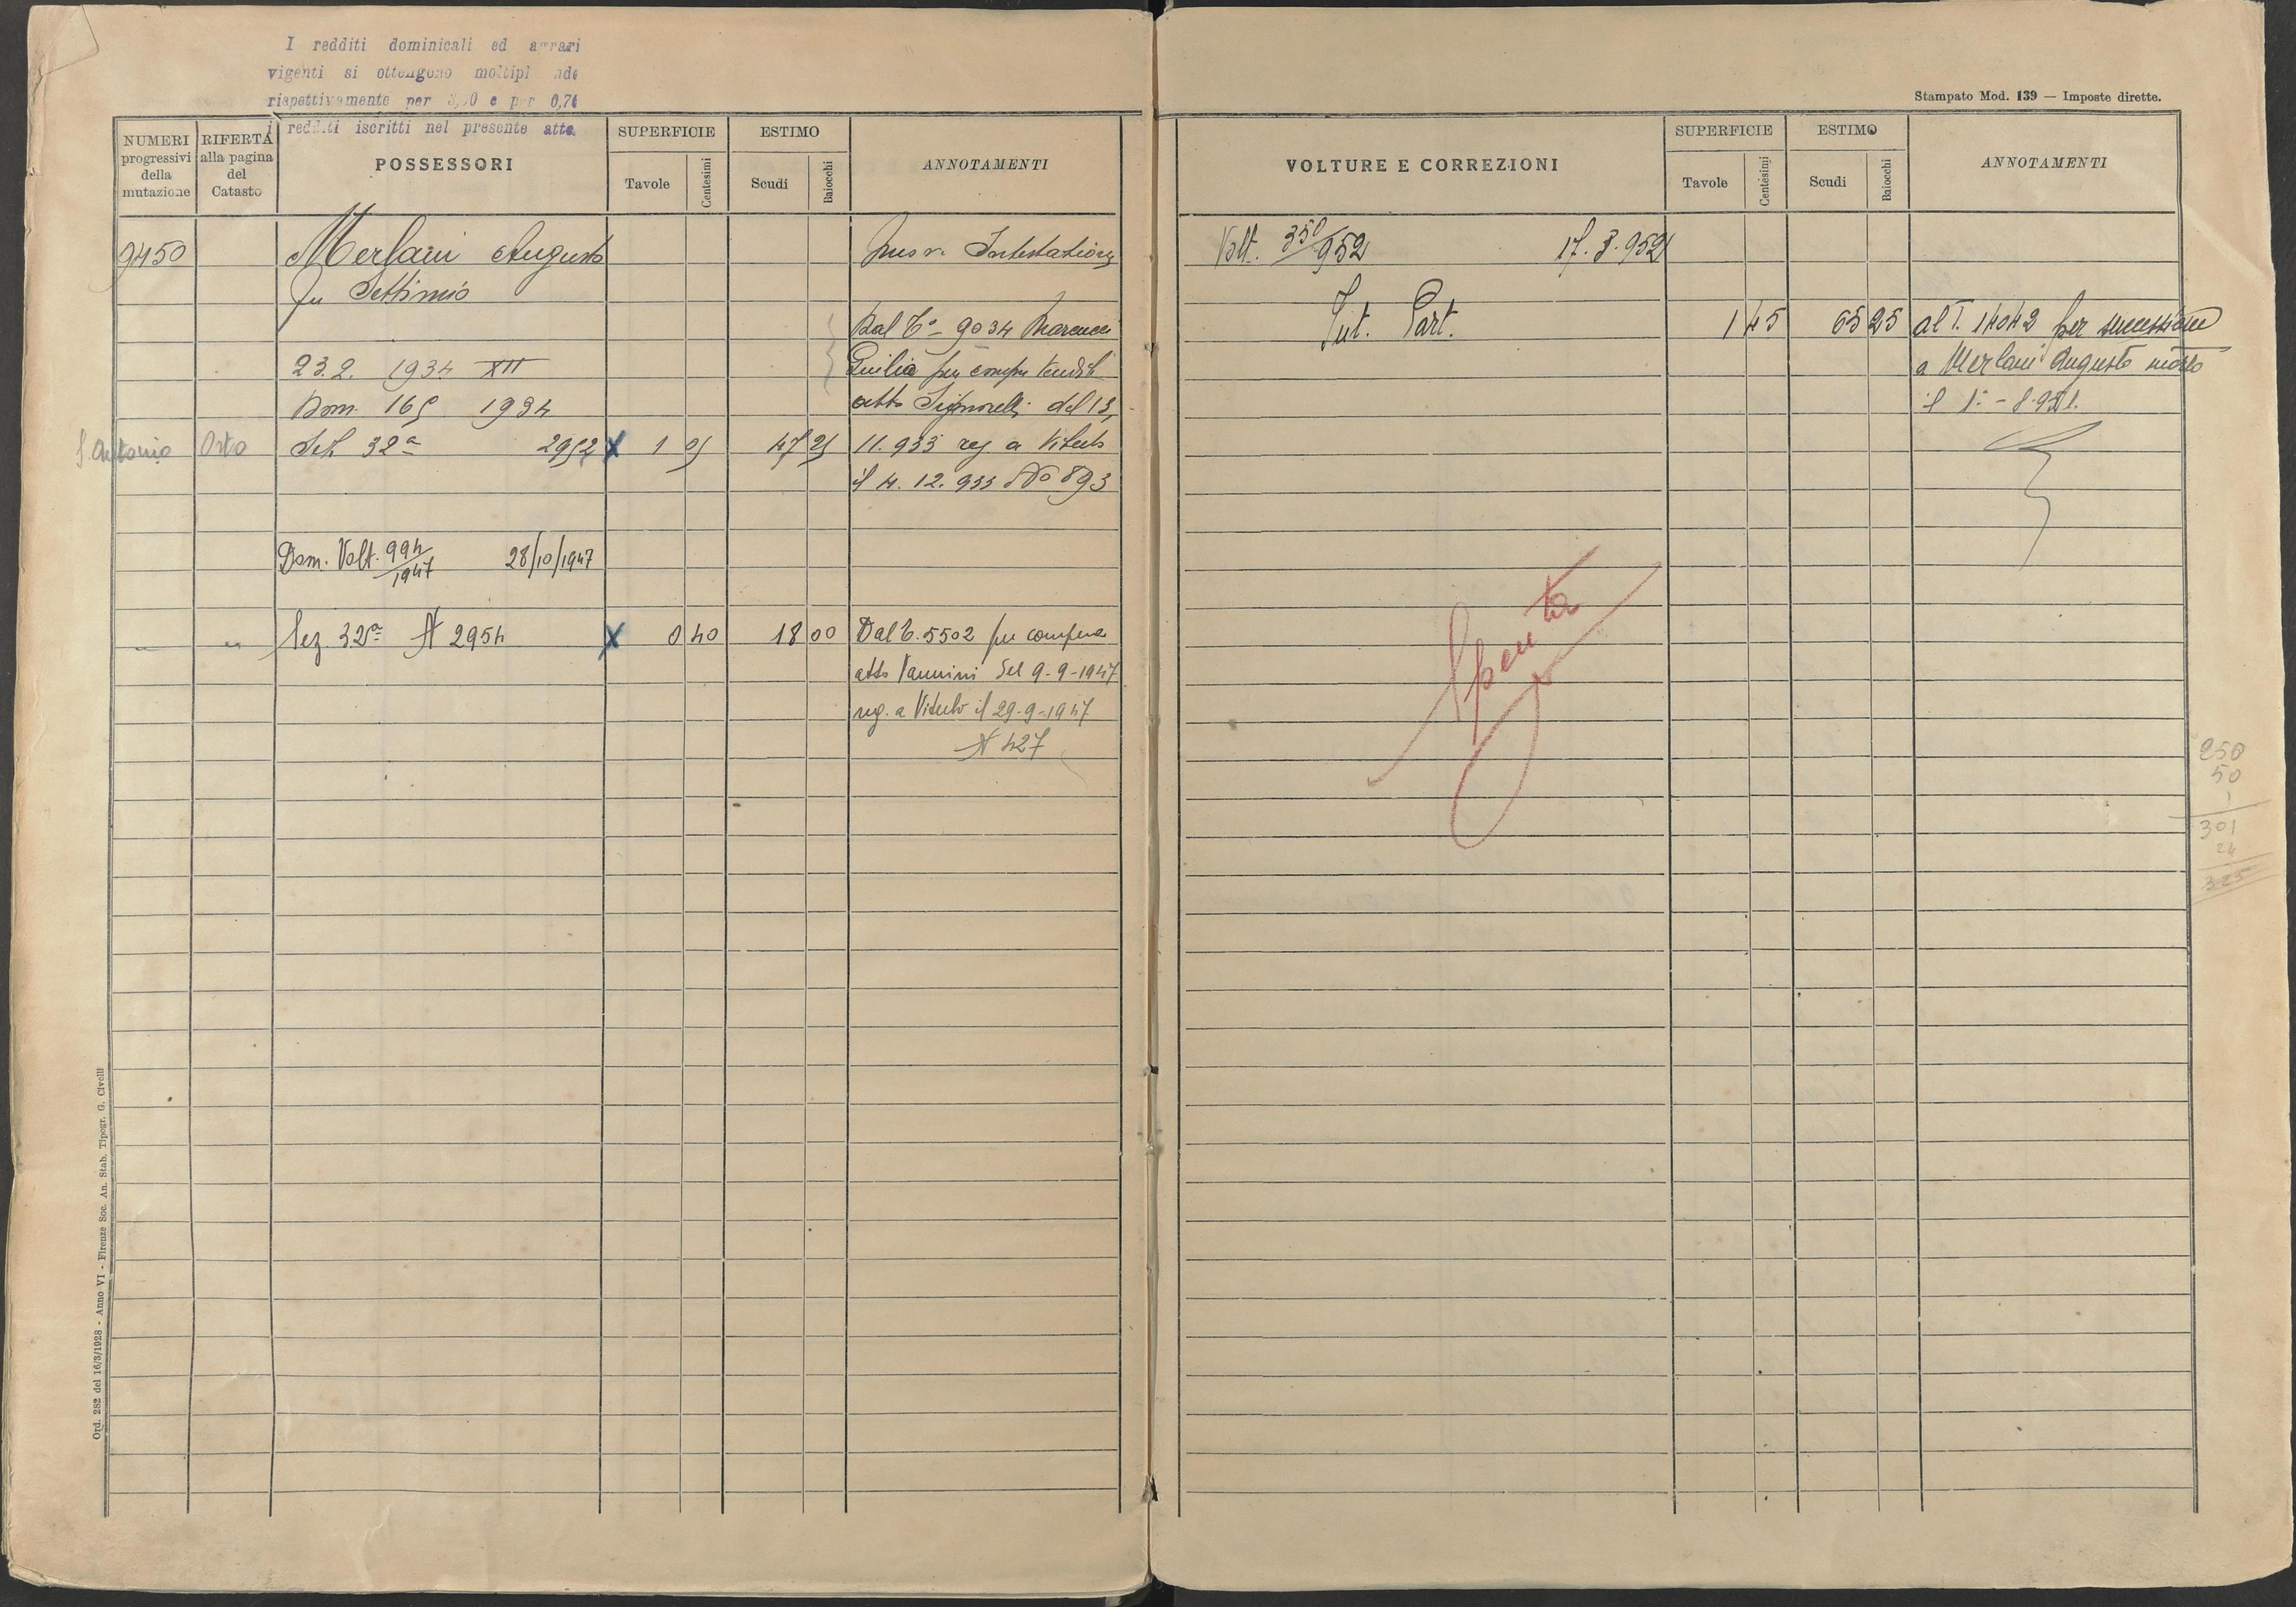 I redditi dominicali ed agrari
vigenti si ottengono
rispettivamente per e per 0,76
i redditi iscritti nel presente atto.
NUMERI progressivi della mutazione
RIFERTA alla pagina del Catasto
POSSESSORI
SUPERFICIE
Tavole
Centesimi
ESTIMO
Scudi
Baiocchi
ANNOTAMENTI
9450 Merlani Augusto Intestazione
fu Settimio
Dal T° 9034 Marcucci
23.2. 1934 XII Giulia per compra vendita
Dom. 165 1934 atto Signorelli del 13,
S. Antonio Orto Sez 32ª 2952 X 1 05 47 25 11.933 reg a Viterbo
il 4. 12. 933 No 893
Dom. Volt. 994/1947 28/10/1947
" " Sez. 32ª N 2954 X 0 40 18 00 Dal T. 5502 per compera
atto Vannini del 9-9-1947
reg. a Viterbo il 29-9-1947
N 427
Ord. 282 del 16/3/1928 - Anno VI - Firenze Soc. An. Stab. Tipogr. G. Civelli
Stampato Mod. 139 — Imposte dirette.
VOLTURE E CORREZIONI
SUPERFICIE
Tavole
Centesimi
ESTIMO
Scudi
Baiocchi
ANNOTAMENTI
Volt. 350/952 17.3.952
Int. Part. 1 45 65 25 al T. 14042 per successione
a Merlani Augusto morto
il 1° - 8.951.
Spenta
250
50
1
301
24
325